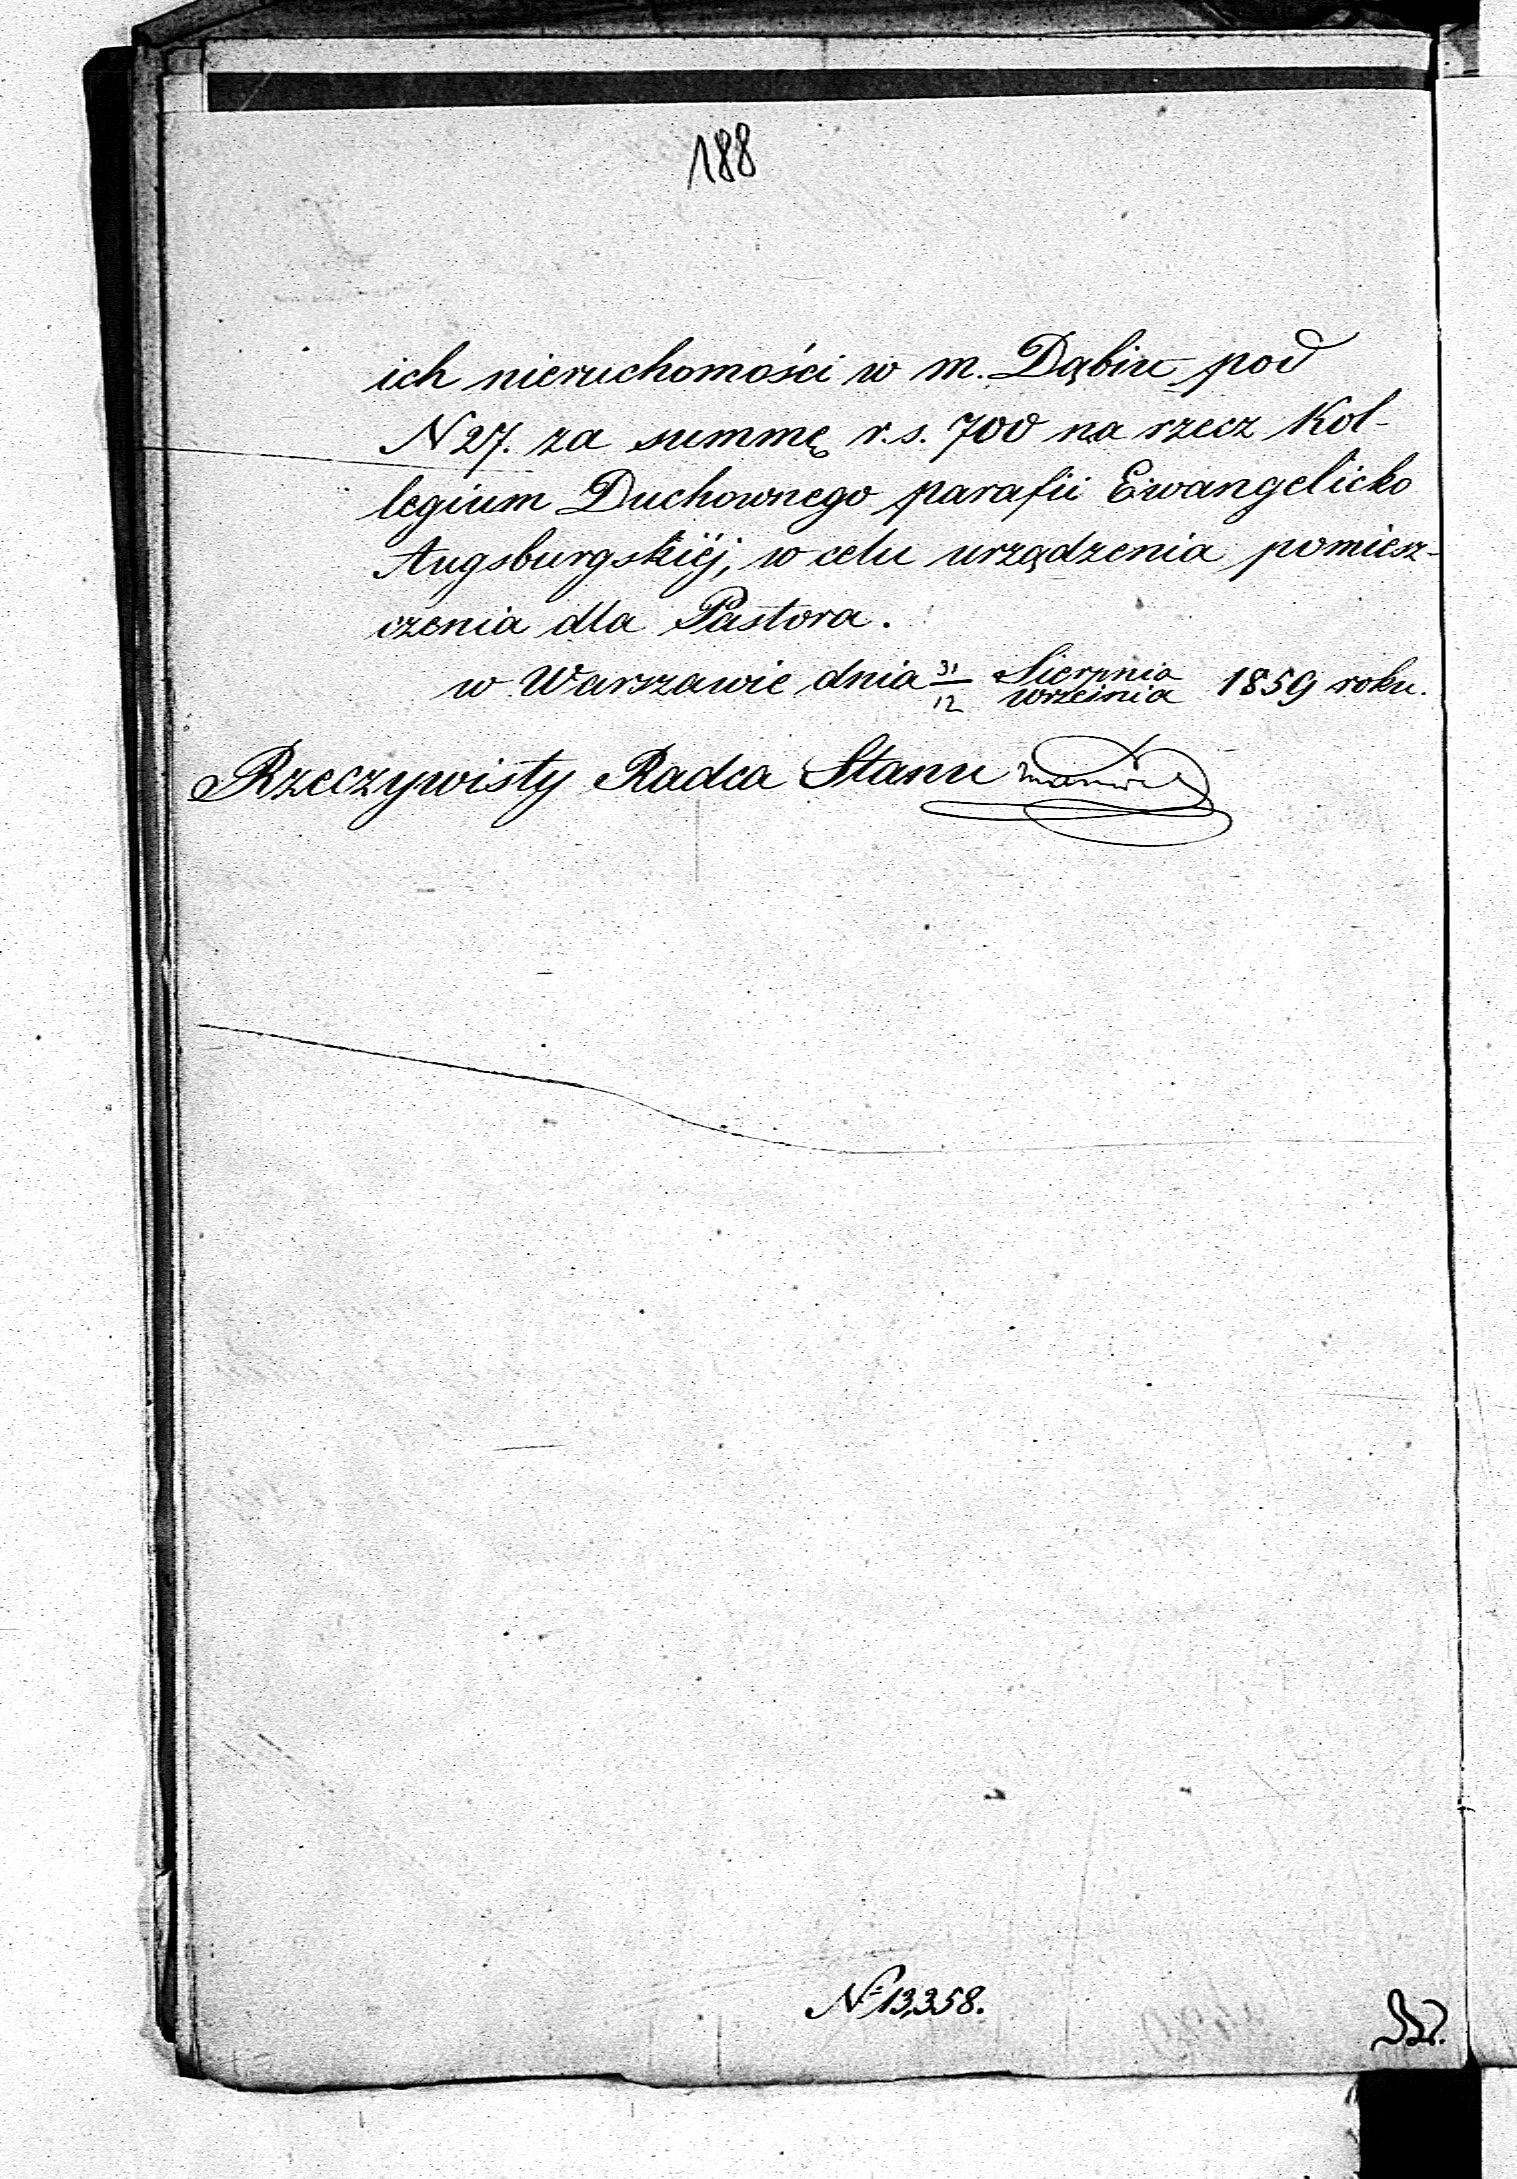 188
ich nieruchomości w m. Dąbiu pod
N 27. za summę r.s. 700 na rzecz Kol-
legium Duchownego parafii Ewangelicko
Augsburgskiéj, w celu urządzenia pomiesz-
czenia dla Pastora.
w Warszawie dnia 31/12 Sierpnia/Września 1859 roku.
Rzeczywisty Radca Stanu
Nº 13,358.